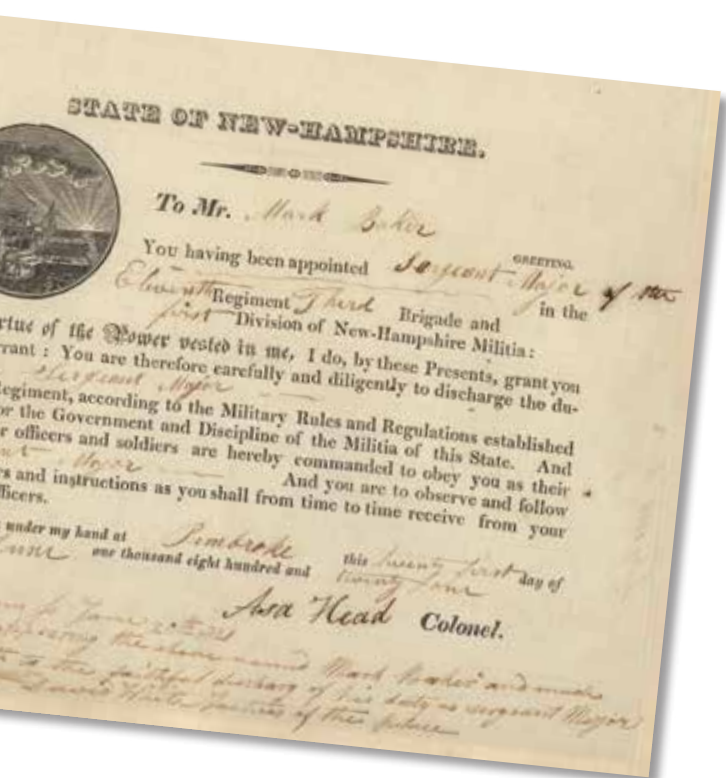 STATE OF NEW-HAMPSHIRE.
To Mr. Mark Baker
GREETING.
You having been appointed Sergeant Major of the
Eleventh Regiment Third Brigade and in the
first Division of New-Hampshire Militia:
rtue of the Power vested in me, I do, by these Presents, grant you
rrant: You are therefore carefully and diligently to discharge the du-
Sergeant Major
Regiment, according to the Military Rules and Regulations established
or the Government and Discipline of the Militia of this State. And
r officers and soldiers are hereby commanded to obey you as their
nt Major And you are to observe and follow
rs and instructions as you shall from time to time receive from your
fficers.
under my hand at Pembroke this twenty first day of
one thousand eight hundred and twenty four
Asa Head Colonel.
the above named Mark Baker and made
to the faithful discharge of his duty as sergeant Major
Justice of the peace